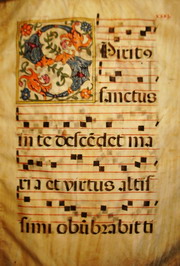 Spirit9
sanctus
in te descēdet ma
ria et virtus altis
simi obūbrabit ti